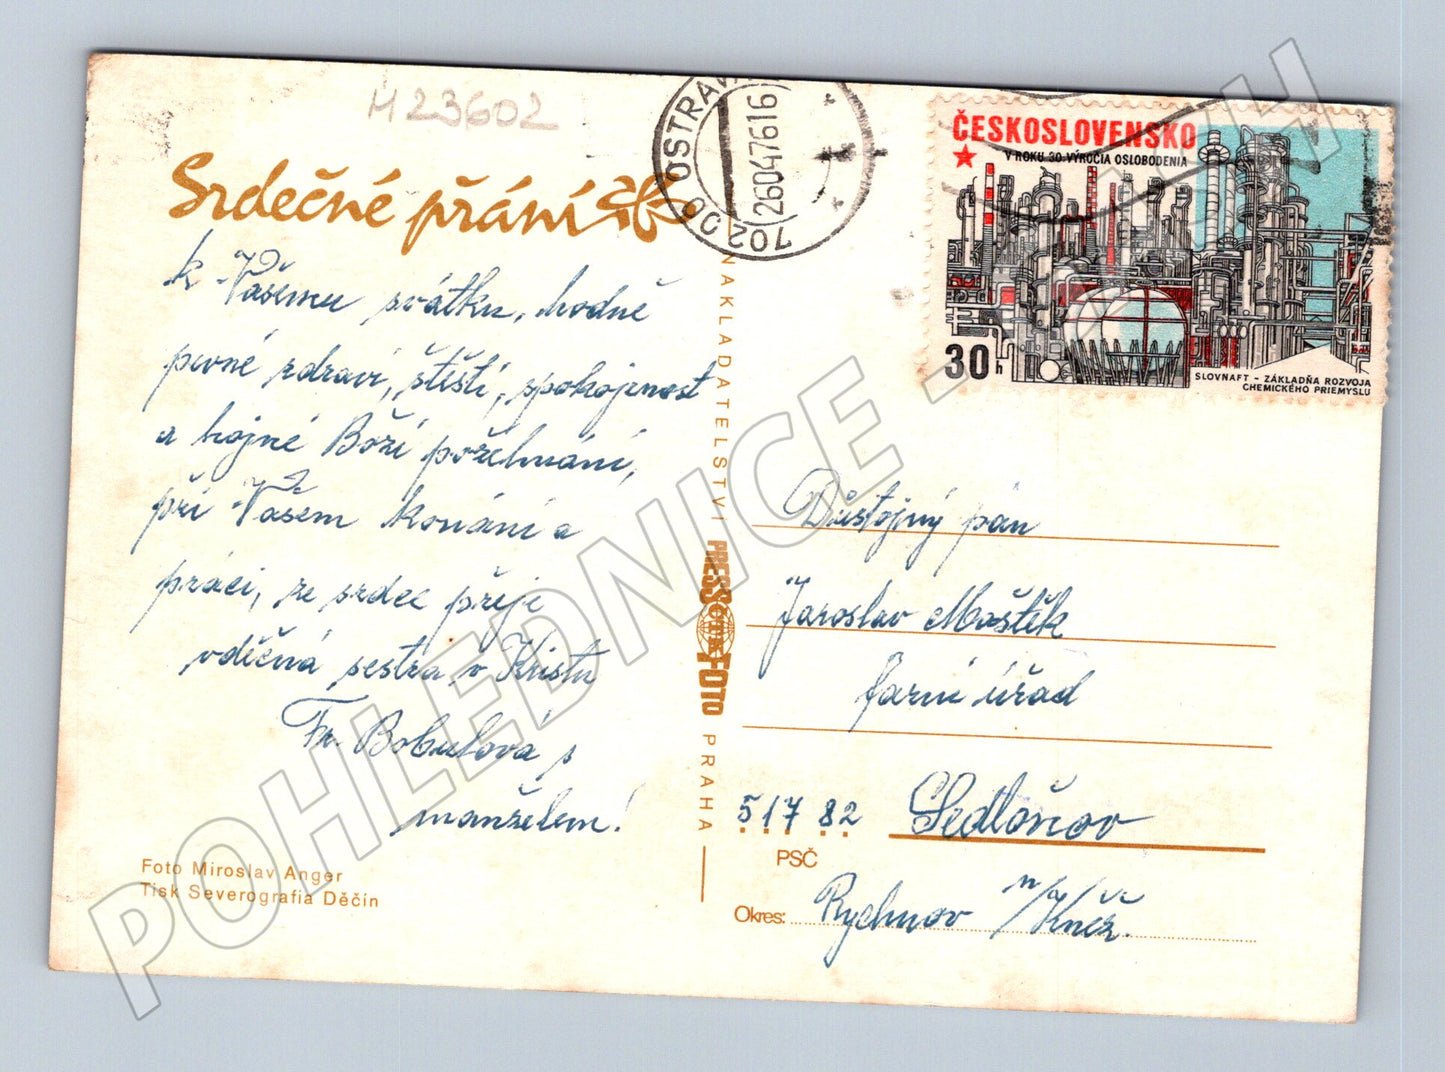 M23602
Srdečné přání
k Vašemu svátku, hodně
pevné zdraví, štěstí, spokojenost
a hojné Boží požehnání,
při Vašem konání a
práci, ze srdce přeje
vděčná sestra v Kristu
Fr. Bobulová s
manželem!
Foto Miroslav Anger
Tisk Severografia Děčín
NAKLADATELSTVÍ PRESSFOTO PRAHA
702 00 OSTRAVA
26047616
ČESKOSLOVENSKO
V ROKU 30. VÝROČIA OSLOBODENIA
30h
SLOVNAFT - ZÁKLADŇA ROZVOJA
CHEMICKÉHO PRIEMYSLU
Důstojný pán
Jaroslav Moštěk
farní úřad
517 82 Sedloňov
PSČ
Okres: Rychnov n/Kněž.
POHLEDNICE